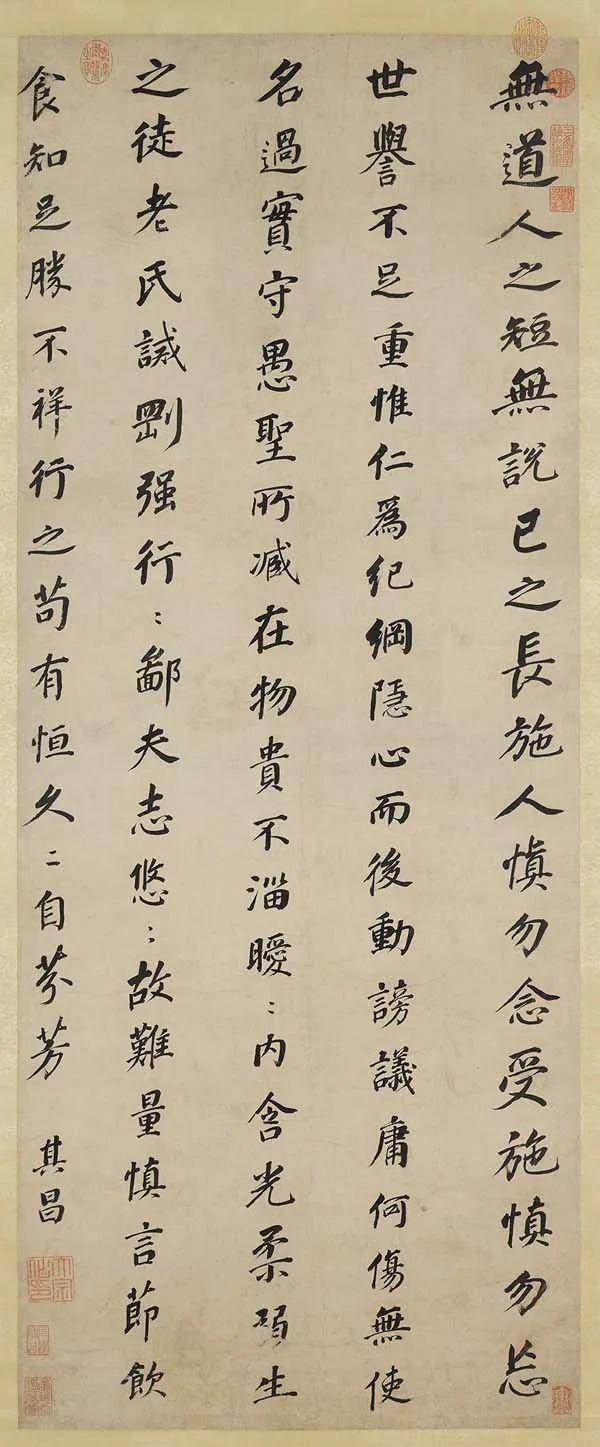 無道人之短無説已之長施人慎勿念受施慎勿忘
世譽不足重惟仁爲紀綱隱心而後動謗議庸何傷無使
名過實守愚聖所臧在物貴不淄曖：内含光柔弱生
之徒老氏誡剛强行：鄙夫志悠：故難量慎言節飲
食知足勝不祥行之苟有恒久二自芬芳
其昌